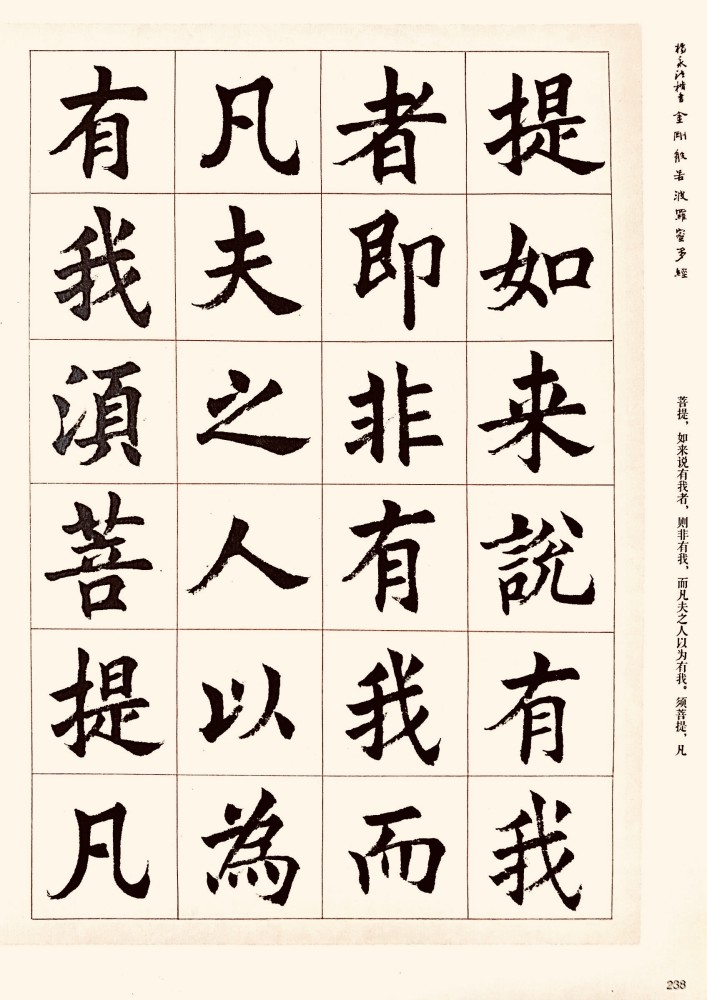 提如来說有我
者即非有我而
凡夫之人以為
有我湏菩提凡
楊永法楷書金剛般若波羅蜜多經
菩提，如来说有我者，则非有我，而凡夫之人以为有我。须菩提，凡
238